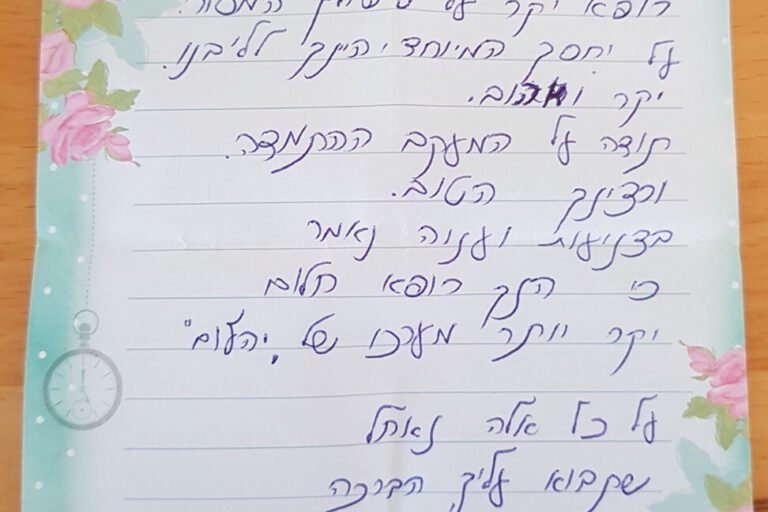 רופא יקר על המסור.
על יחסך המיוחד, הינך לליבנו.
יקר ואהוב.
תודה על המעקב ההתמדה.
ורצינך הטוב.
בצניעות וענוה נאמר
כי הנך רופא חלום
יקר יותר מערכו של "יהלום"
על כל אלה נאחל
שתבוא עליך הברכה